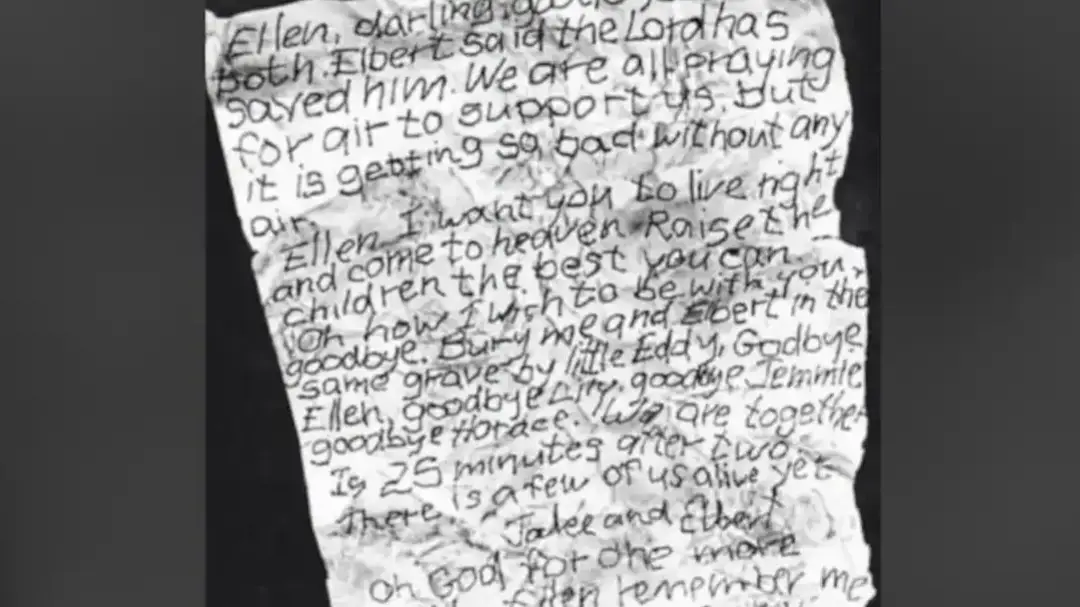 Ellen, darling, goodbye
both. Elbert said the Lord has
saved him. We are all praying
for air to support us, but
it is getting so bad without any
air.
Ellen I want you to live right
and come to heaven. Raise the
children the best you can
oh how I wish to be with you,
goodbye. Bury me and Elbert in the
same grave by little Eddy, Godbye
Ellen, goodbye Lily, goodbye Jemmie
goodbye Horace. We are together
Is 25 minutes after two
there is a few of us alive yet
Jake and Elbert
oh God for one more
Ellen remember me